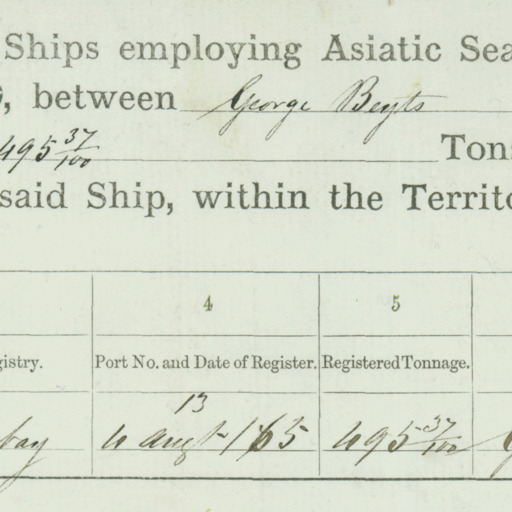 Ships employing Asiatic Sea
, between George Beyts
495 37/100 Tons
said Ship, within the Territo
4 5
gistry. Port No. and Date of Register. Registered Tonnage.
13
bay 4 Augt 1865 495 37/100